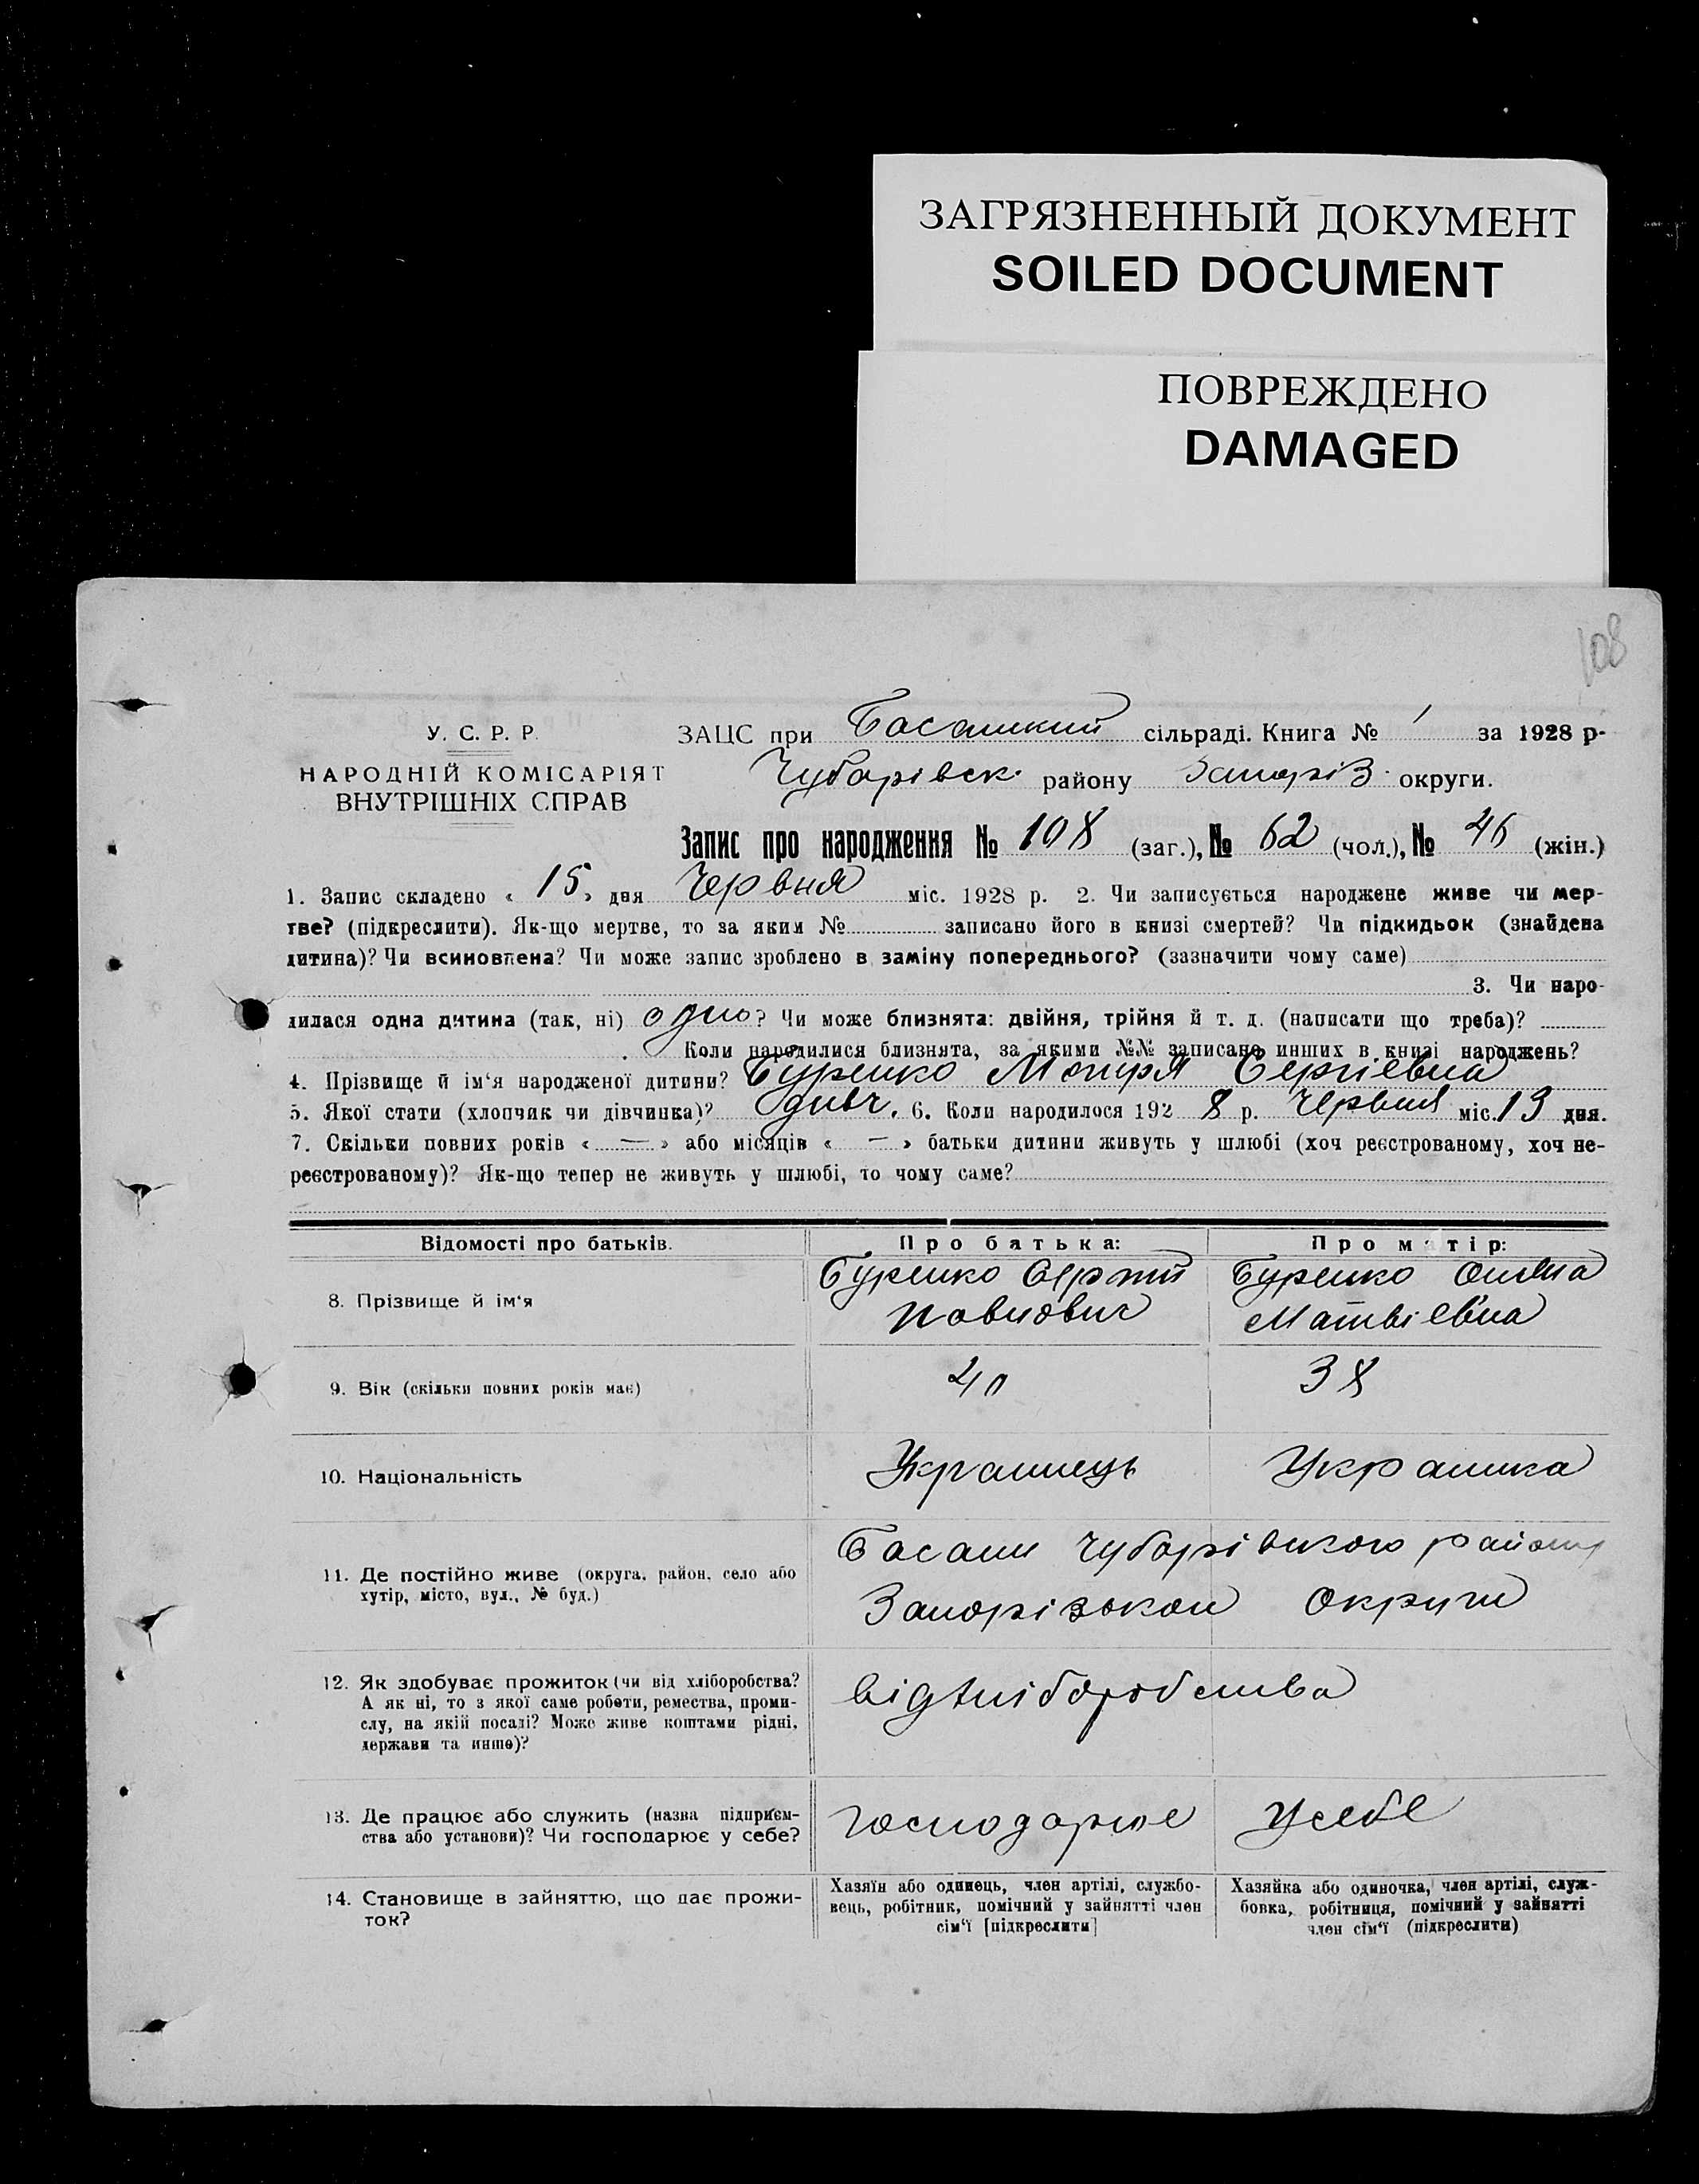 ЗАГРЯЗНЕННЫЙ ДОКУМЕНТ
SOILED DOCUMENT
ПОВРЕЖДЕНО
DAMAGED
108
У. С. Р. Р.
НАРОДНІЙ КОМІСАРІЯТ
ВНУТРІШНІХ СПРАВ
ЗАЦС при Басанский сільраді. Книга № 1 за 1928 р-
Чубарівск. району Запоріз. округи.
Запис про народження № 108 (заг.), № 62 (чол.), № 46 (жін.)
1. Запис складено « 15 » дня Червня міс. 1928 р. 2. Чи записується народжене живе чи мер-
тве? (підкреслити). Як-що мертве, то за яким № записано його в книзі смертей? Чи підкидьок (знайдена
дитина)? Чи всиновлена? Чи може запис зроблено в заміну попереднього? (зазначити чому саме)
3. Чи наро-
дилася одна дитина (так, ні) одно? Чи може близнята: двійня, трійня й т. д. (написати що треба)?
Коли народилися близнята, за якими №№ записано инших в книзі народжень?
4. Прізвище й ім'я народженої дитини? Буренко Сергіевна
5. Якої стати (хлопчик чи дівчинка)? дивч. 6. Коли народилося 192 8 р. Червня міс. 13 дня.
7. Скільки повних років « — » або місяців « — » батьки дитини живуть у шлюбі (хоч реєстрованому, хоч не-
реєстрованому)? Як-що тепер не живуть у шлюбі, то чому саме?
Відомості про батьків. Про батька: Про матір:
8. Прізвище й ім'я
Буренко Сергий Буренко
Павлович Матвіевна
9. Вік (скільки повних років має) 40 38
10. Національність Украинець Украинка
11. Де постійно живе (округа, район, село або
хутір, місто, вул., № буд.)
Басани Чубарівского району
Запорізькои Округи
12. Як здобуває прожиток (чи від хліборобства?
А як ні, то з якої саме роботи, ремества, проми-
слу, на якій посаді? Може живе коштами рідні,
держави та инше)?
від хліборобства
13. Де працює або служить (назва підприєм-
ства або установи)? Чи господарює у себе?
господарює У себе
14. Становище в зайняттю, що дає прожи-
ток?
Хазяїн або одинець, член артілі, службо-
вець, робітник, помічний у зайнятті член
сім'ї [підкреслити]
Хазяйка або одиночка, член артілі, служ-
бовка, робітниця, помічний у зайнятті
член сім'ї (підкреслити)